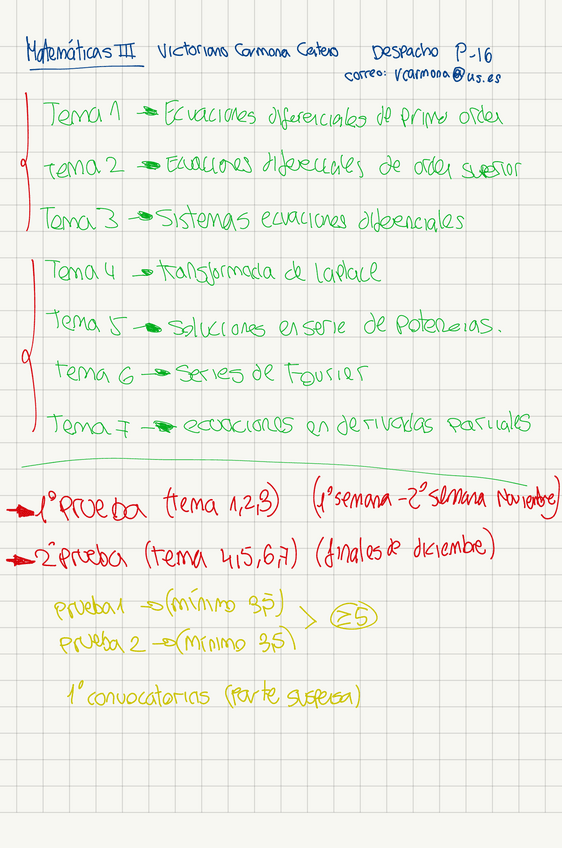 Matemáticas III Victoriano Carmona Centero Despacho P-16
correo: vcarmona@us.es
Tema 1 → Ecuaciones diferenciales de primer orden
Tema 2 → Ecuaciones diferenciales de orden superior
Tema 3 → Sistemas ecuaciones diferenciales
Tema 4 → transformada de Laplace
Tema 5 → soluciones en serie de potencias.
Tema 6 → Series de Fourier
Tema 7 → ecuaciones en derivadas parciales
→ 1º Prueba (tema 1,2,3) (1º semana - 2º semana Noviembre)
→ 2º prueba (tema 4,5,6,7) (finales de diciembre)
prueba 1 → (mínimo 3,5) > ≥5
prueba 2 → (mínimo 3,5)
1º convocatorias (parte suspensa)